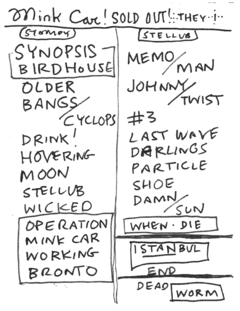 Mink Car! SOLD OUT!! THEY
STOMPY
SYNOPSIS
BIRDHOUSE
OLDER
BANGS/
CYCLOPS
DRINK!
HOVERING
MOON
STELLUB
WICKED
OPERATION
MINK CAR
WORKING
BRONTO
STELLUB
MEMO/
MAN
JOHNNY/
TWIST
#3
LAST WAVE
DARLINGS
PARTICLE
SHOE
DAMN/
SUN
WHEN · DIE
ISTANBUL
END
DEAD
WORM